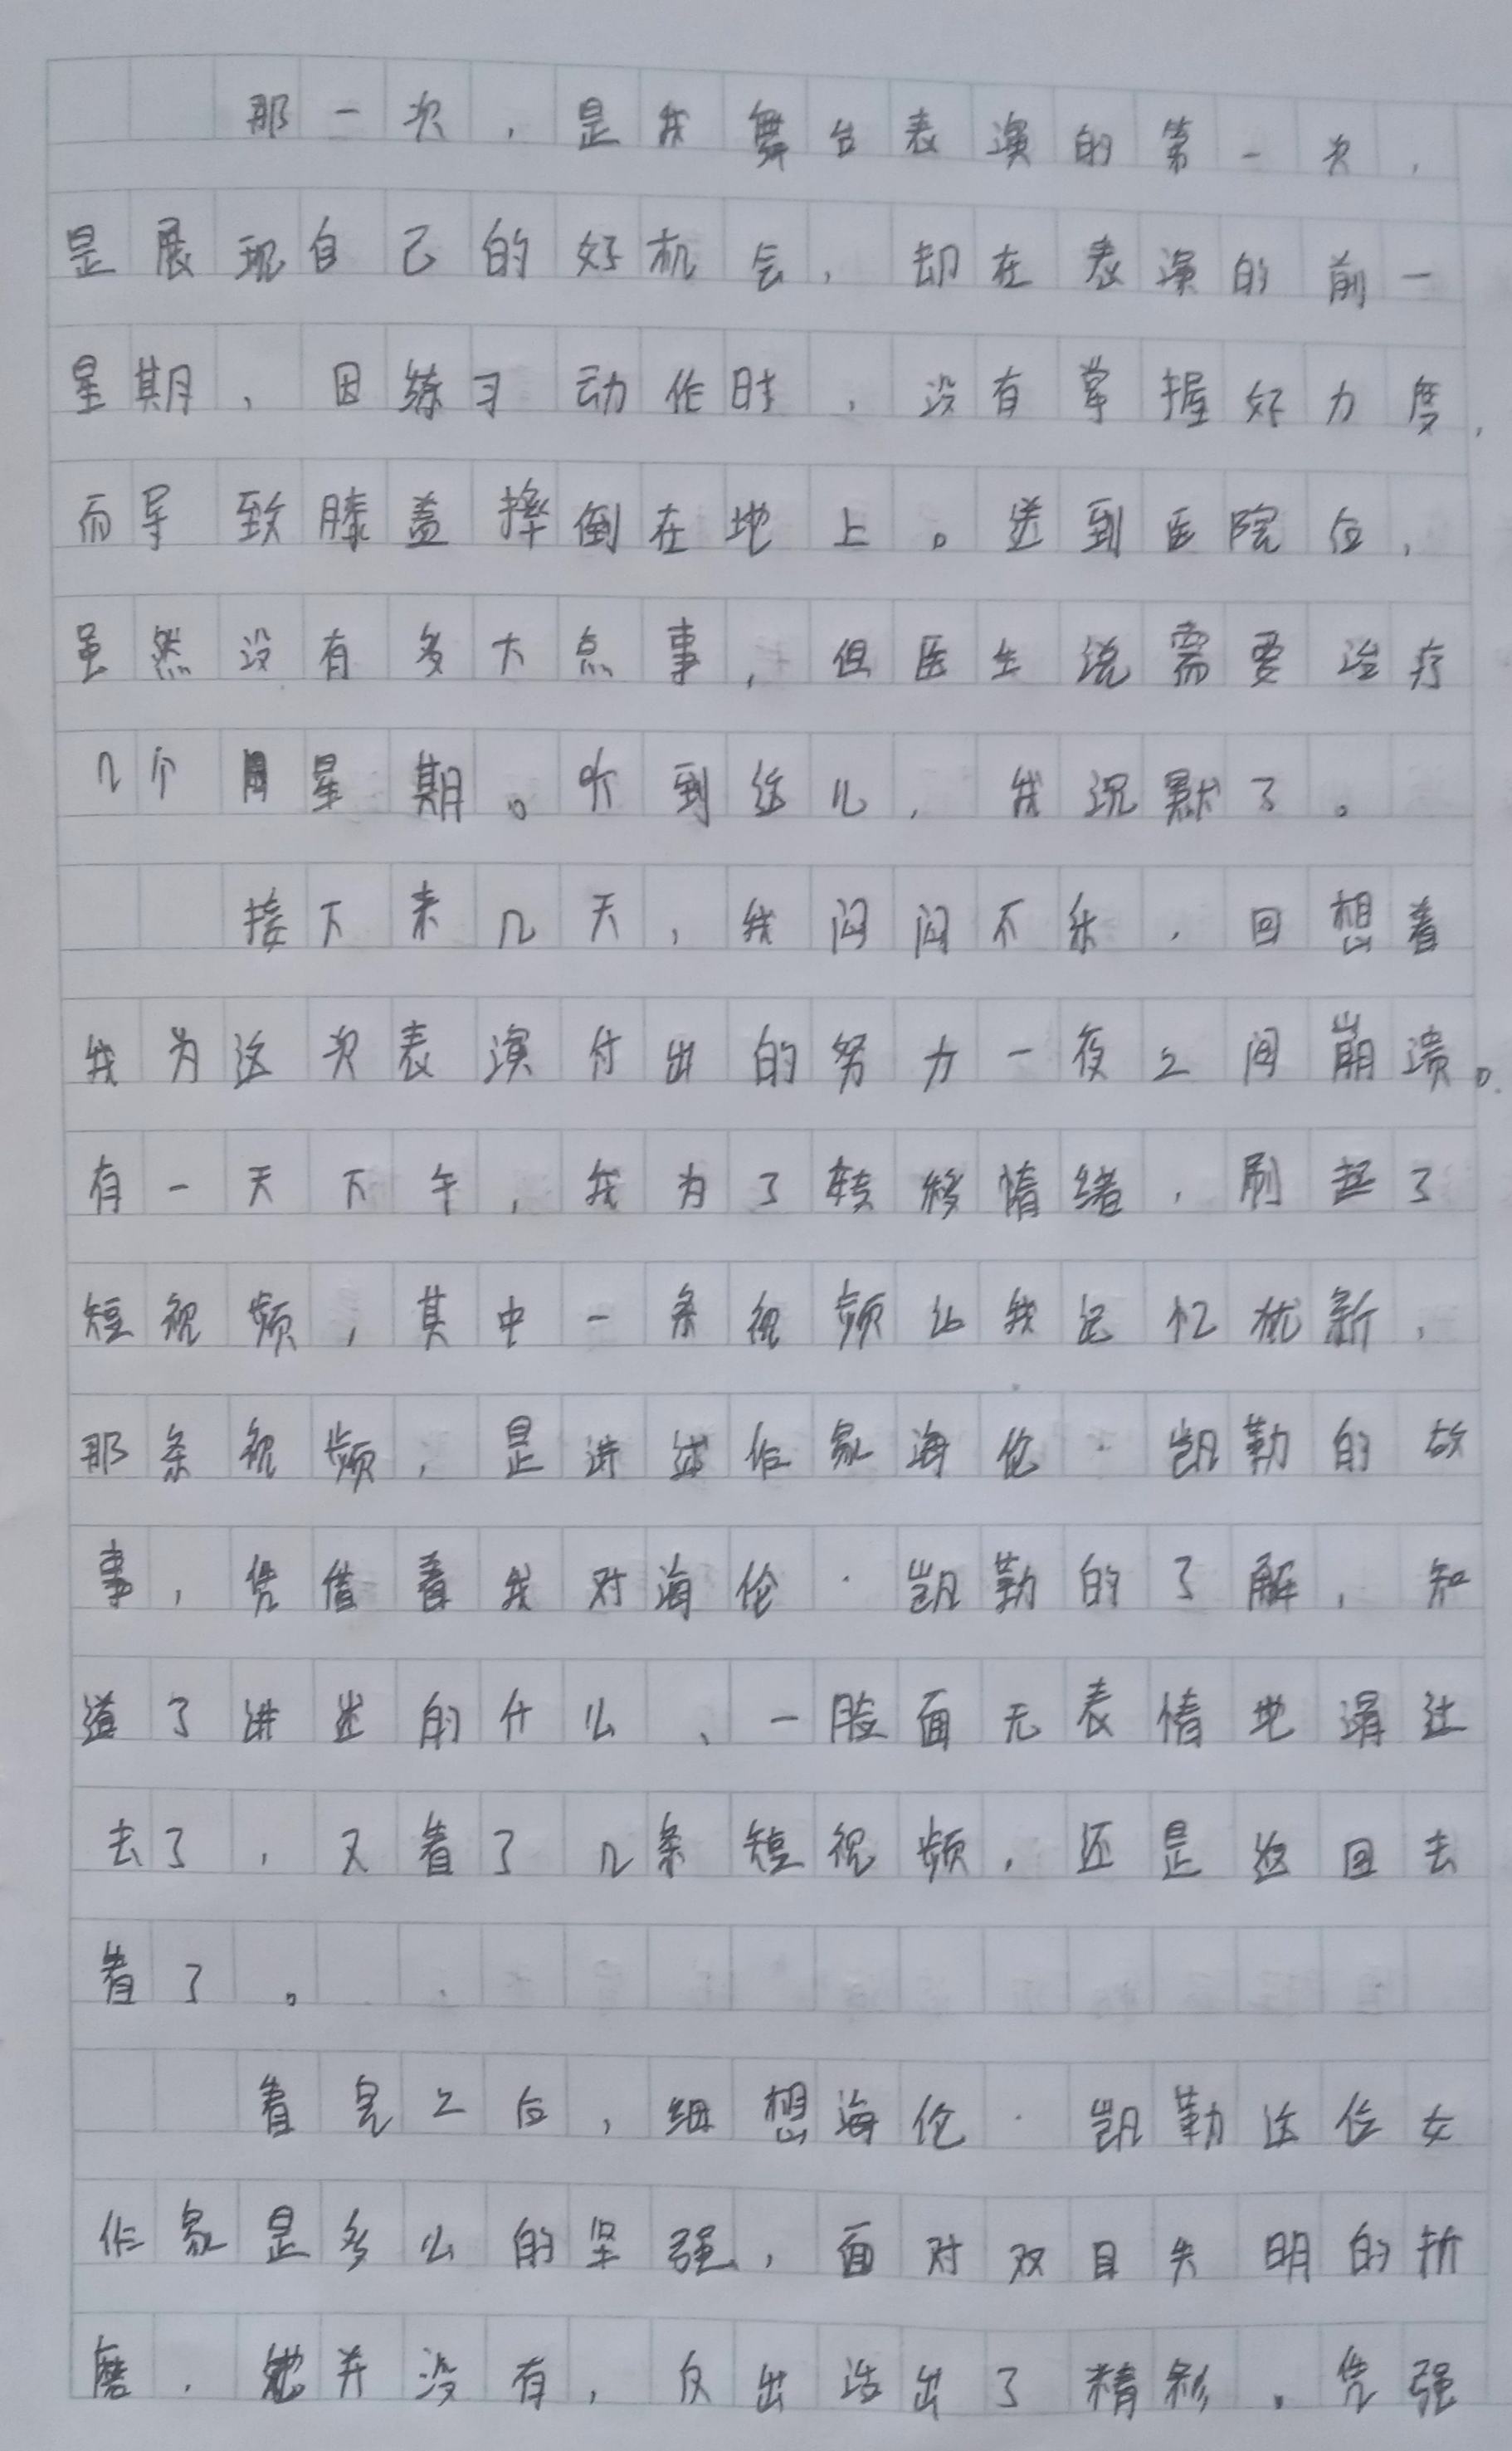 那一次，是我舞台表演的第一次，
是展现自己的好机会，却在表演的前一
星期，因练习动作时，没有掌握好力度，
而导致膝盖摔倒在地上。送到医院后，
虽然没有多大点事，但医生说需要治疗
几个星期。听到这儿，我沉默了。
接下来几天，我闷闷不乐，回想着
我为这次表演付出的努力一夜之间崩溃。
有一天下午，我为了转移情绪，刷起了
短视频，其中一条视频让我记忆犹新，
那条视频，是讲述作家海伦·凯勒的故
事，凭借着我对海伦·凯勒的了解，知
道了讲述的什么、一脸面无表情地滑过
去了，又看了几条短视频，还是返回去
看了。
看完之后，细想海伦·凯勒这位女
作家是多么的坚强，面对双目失明的折
磨，她并没有，反出活出了精彩。凭强